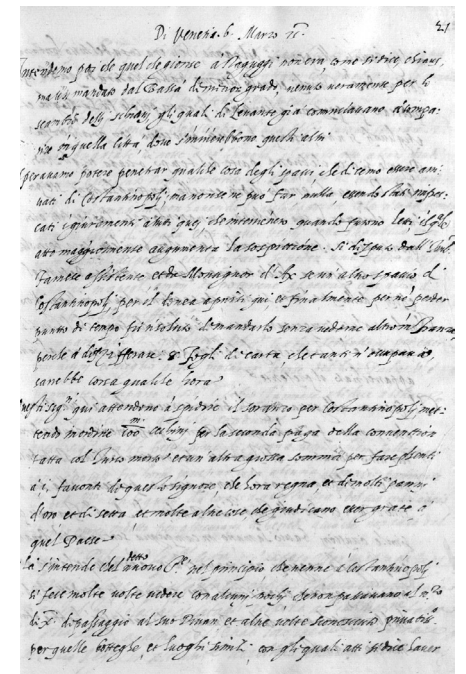 21
Di Venetia 6 Marzo 75.
Intendemo poi che quel che gionse à Raguggi non era, come si dice, chiaus,
ma un mandato dal Bassà di minor grado, venuto veramente per lo
delli schiavi gli quali di Levante già cominciavano
in quella città, dove
Speravamo potere penetrar qualche cosa degli spacci che di como essere arri-
vati di Costantinopoli, ma non se ne può far nulla essendo stati
cati i giuramenti à tutti quei, che intervenero quando furono letti, il che
 maggiormente augumenta la sospittione. Si di poi dall'
Farnese et de Monsignor d'Ax se un altro spaccio di
Costantinopoli, per il qui et finalmente per no perder
punto di tempo fu risoluto di mandarlo senza vederne altro in Franza,
perche à fogli di carta, che tanti n' occupava,
sarebbe corsa qualche hora
Questi Sigri qui attendono à spedire il Soranzo per Costantinopoli met-
tendo in ordine 100 m cechini per la seconda paga della conventione
fatta col Turco morto et un' altra grossa somma per fare presenti
à i favoriti di questo signore, che hora regna, et di molti panni
d'oro et di setta, et molte altre cose che giudicano esser grate à
quel Paese
S'intende che detto nuovo Sre nel principio che venne à Costantinopoli
si fece molte volte vedere con alcuni pochi che l'accompagnavano al no
di X. di passaggio al suo Divan et altre volte
per quelle botteghe, et luoghi simili, con gli quali atti si dice haver